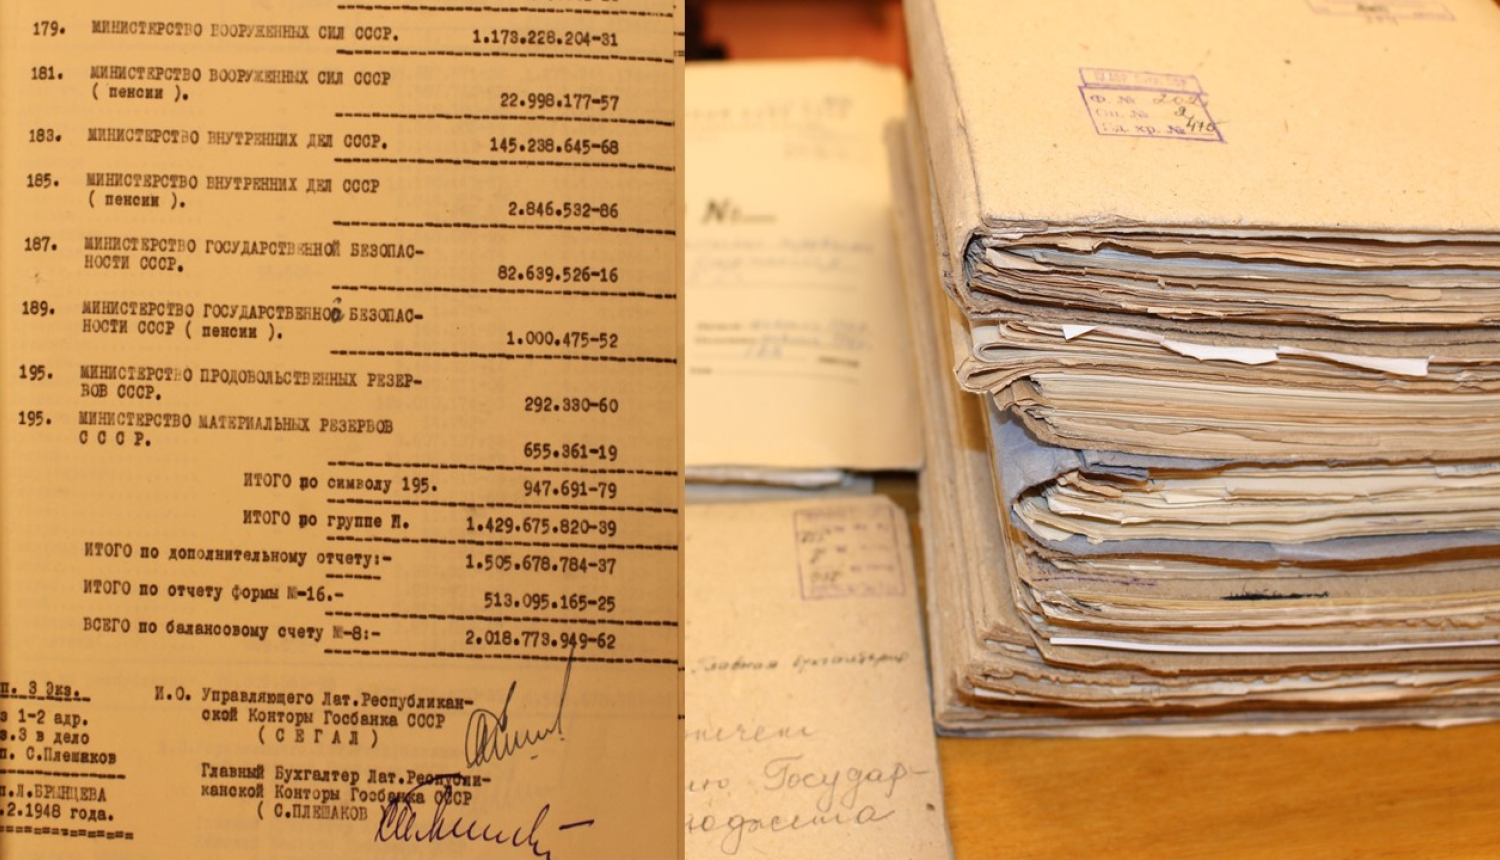 179. МИНИСТЕРСТВО ВООРУЖЕННЫХ СИЛ СССР. 1.173.228.204-31
181. МИНИСТЕРСТВО ВООРУЖЕННЫХ СИЛ СССР
( пенсии ). 22.998.177-57
183. МИНИСТЕРСТВО ВНУТРЕННИХ ДЕЛ СССР. 145.238.645-68
185. МИНИСТЕРСТВО ВНУТРЕННИХ ДЕЛ СССР
( пенсии ). 2.846.532-86
187. МИНИСТЕРСТВО ГОСУДАРСТВЕННОЙ БЕЗОПАС-
НОСТИ СССР. 82.639.526-16
189. МИНИСТЕРСТВО ГОСУДАРСТВЕННОЙ БЕЗОПАС-
НОСТИ СССР ( пенсии ). 1.000.475-52
195. МИНИСТЕРСТВО ПРОДОВОЛЬСТВЕННЫХ РЕЗЕР-
ВОВ СССР. 292.330-60
195. МИНИСТЕРСТВО МАТЕРИАЛЬНЫХ РЕЗЕРВОВ
С С С Р. 655.361-19
ИТОГО по символу 195. 947.691-79
ИТОГО по группе И. 1.429.675.820-39
ИТОГО по дополнительному отчету:- 1.505.678.784-37
ИТОГО по отчету формы №-16.- 513.095.165-25
ВСЕГО по балансовому счету №-8:- 2.018.773.949-62
п. 3 Экз.
з 1-2 адр.
з.3 в дело
п. С.Плешаков
п.Л.БРЫНЦЕВА
.2.1948 года.
И.О. Управляющего Лат.Республикан-
ской Конторы Госбанка СССР
( С Е Г А Л )
Главный Бухгалтер Лат.Республи-
канской Конторы Госбанка СССР
( С.ПЛЕШАКОВ )
№
Главная бухгалтерия
Государ-
Ф. № 202
Оп. № 2
Ед. хр. № 410